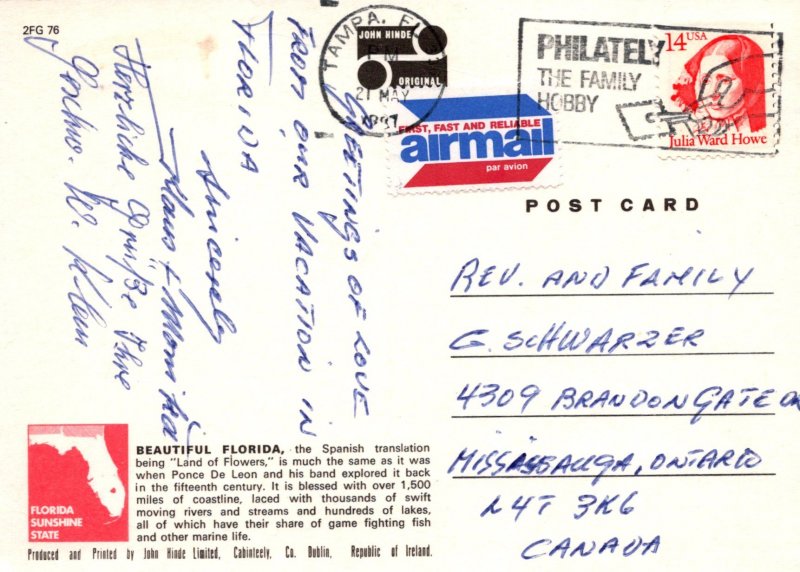 2FG 76
JOHN HINDE
ORIGINAL
TAMPA, FL
PM
21 MAY
PHILATELY
THE FAMILY
HOBBY
14 USA
Julia Ward Howe
FIRST, FAST AND RELIABLE
airmail
par avion
POST CARD
GREETINGS OF LOVE
FROM OUR VACATION IN
FLORIDA
Sincerely
Hans + Monika
Herzliche Grüße Ihre
Geschw. W. Klein
REV. AND FAMILY
G. SCHWARZER
4309 BRANDONGATE DR
MISSISSAUGA, ONTARIO
L4T 3K6
CANADA
FLORIDA
SUNSHINE
STATE
BEAUTIFUL FLORIDA, the Spanish translation
being "Land of Flowers," is much the same as it was
when Ponce De Leon and his band explored it back
in the fifteenth century. It is blessed with over 1,500
miles of coastline, laced with thousands of swift
moving rivers and streams and hundreds of lakes,
all of which have their share of game fighting fish
and other marine life.
Produced and Printed by John Hinde Limited, Cabinteely, Co. Dublin, Republic of Ireland.